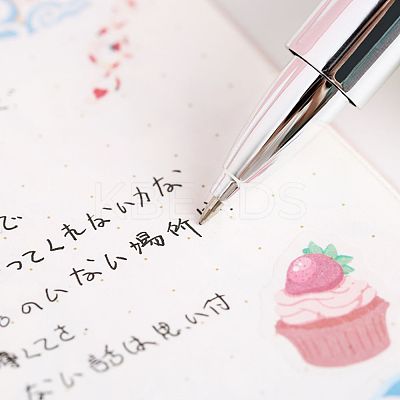 で
ってくれないかな
のいない場所
くてさ
ない話は思い付
KBEADS